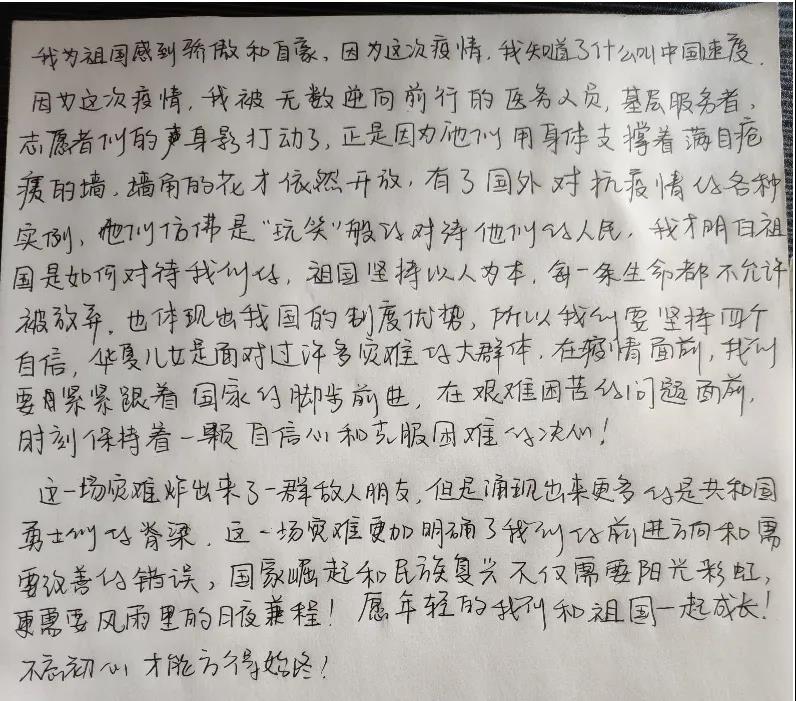 我为祖国感到骄傲和自豪，因为这次疫情，我知道了什么叫中国速度。
因为这次疫情，我被无数逆向前行的医务人员，基层服务者，
志愿者们的身影打动了，正是因为他们用身体支撑着满目疮
痍的墙，墙角的花才依然开放，有了国外对抗疫情的各种
实例，他们仿佛是“玩笑”般的对待他们的人民，我才明白祖
国是如何对待我们的，祖国坚持以人为本，每一条生命都不允许
被放弃。也体现出我国的制度优势，所以我们要坚持四个
自信，华夏儿女是面对过许多灾难的大群体，在疫情面前，我们
要紧紧跟着国家的脚步前进，在艰难困苦的问题面前，
时刻保持着一颗自信心和克服困难的决心！
这一场灾难炸出来了一群敌人朋友，但是涌现出来更多的是共和国
勇士们的脊梁，这一场灾难更加明确了我们的前进方向和需
要改善的错误，国家崛起和民族复兴不仅需要阳光彩虹，
更需要风雨里的日夜兼程！愿年轻的我们和祖国一起成长！
不忘初心才能方得始终！